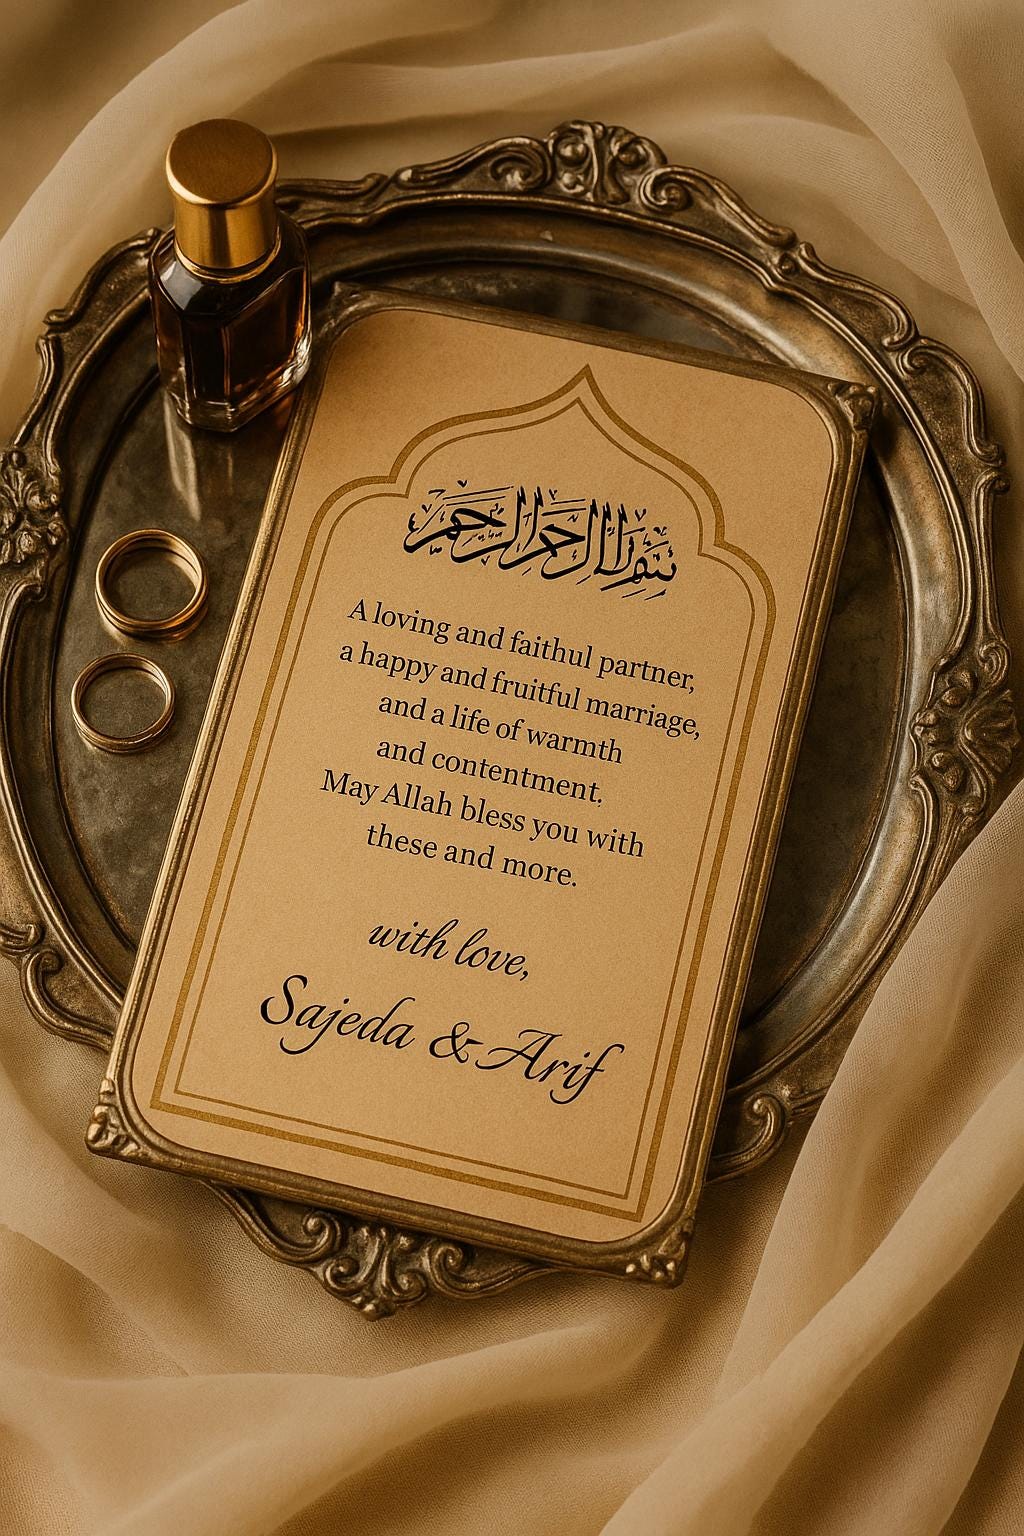 بسم الله الرحمن الرحيم
A loving and faithful partner,
a happy and fruitful marriage,
and a life of warmth
and contentment.
May Allah bless you with
these and more.
with love,
Sajeda & Arif